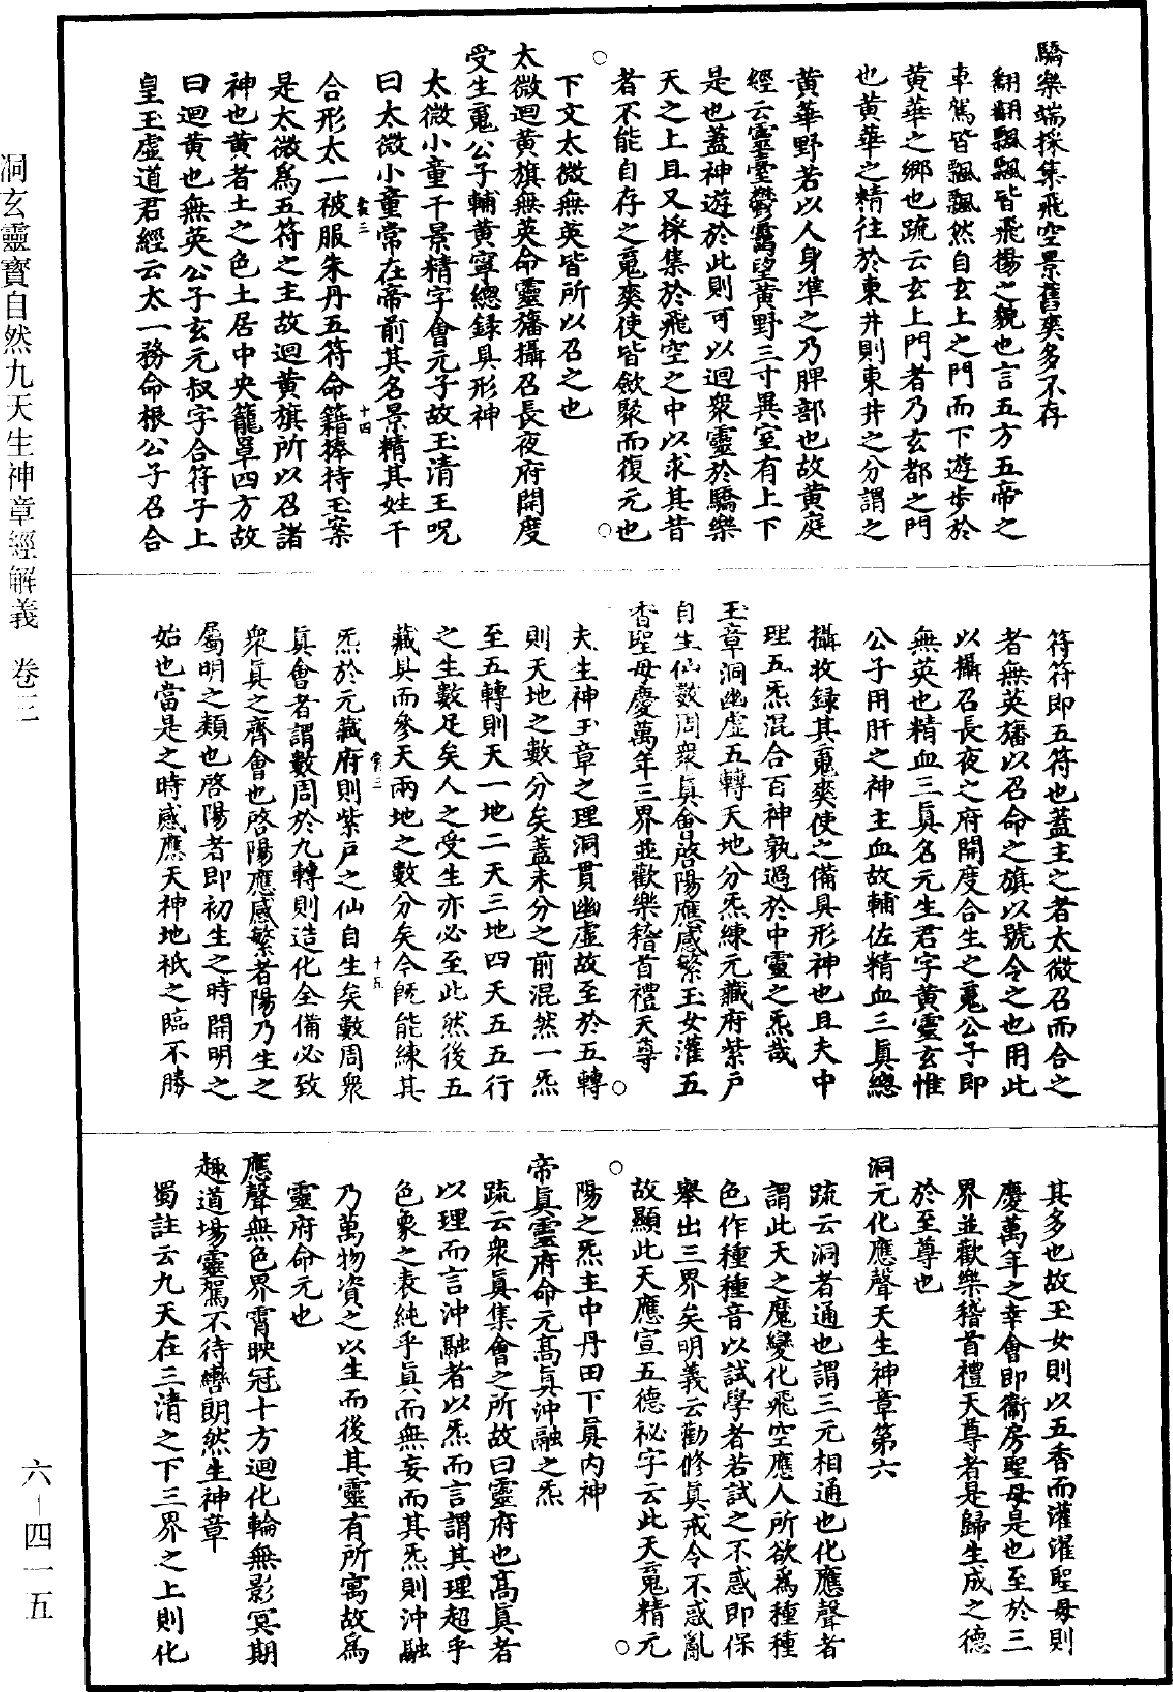 驕樂端採集飛空景舊爽多不存
翩翩飄飄皆飛揚之貌也言五方五帝之
車駕皆飄飄然自玄上之門而下遊步於
黃華之鄉也疏云玄上門者乃玄都之門
也黃華之精往於東井則東井之分謂之
黃華野若以人身準之乃脾部也故黃庭
經云靈臺鬱藹望黃野三寸異室有上下
是也蓋神遊於此則可以迴衆靈於驕樂
天之上且又採集於飛空之中以求其昔
者不能自存之䰟爽使皆歛聚而復元也
○
下文太微無英皆所以召之也
太微迴黃旗無英命靈旛攝召長夜府開度
受生䰟公子輔黃寧總錄具形神
太微小童千景精字會元子故玉清王呪
曰太微小童常在帝前其名景精其姓千
合形太一被服朱丹五符命籍捧持玉案
是太微爲五符之主故迴黃旗所以召諸
神也黃者土之色土居中央籠罩四方故
曰迴黃也無英公子玄元叔字合符子上
皇玉虛道君經云太一務命根公子召合
符符即五符也蓋主之者太微召而合之
者無英旛以召命之旗以號令之也用此
以攝召長夜之府開度合生之䰟公子即
無英也精血三眞名元生君字黃靈玄惟
公子用肝之神主血故輔佐精血三眞總
攝收録其䰟爽使之備具形神也且夫中
理五炁混合百神孰過於中靈之炁哉
玉章洞幽虛五轉天地分炁練元藏府紫戶
自生仙數周衆眞會啓陽應感繁玉女灌五
香聖母慶萬年三界並歡樂稽首禮天尊
夫生神玉章之理洞貫幽虛故至於五轉
則天地之數分矣蓋未分之前混然一炁
至五轉則天一地二天三地四天五五行
之生數足矣人之受生亦必至此然後五
藏具而參天兩地之數分矣今旣能練其
炁於元藏府則紫戶之仙自生矣數周衆
眞會者謂數周於九轉則造化全備必致
衆眞之齊會也啓陽應感繁者陽乃生之
屬明之類也啓陽者即初生之時開明之
始也當是之時感應天神地祇之臨不勝
其多也故玉女則以五香而灌濯聖母則
慶萬年之幸會即衞房聖母是也至於三
界並歡樂稽首禮天尊者是歸生成之德
於至尊也
洞元化應聲天生神章第六
疏云洞者通也謂三元相通也化應聲者
謂此天之魔變化飛空應人所欲爲種種
色作種種音以試學者若試之不惑即保
舉出三界矣明義云勸修眞戒令不惑亂
故顯此天應宣五德祕字云此天䰟精元
○
陽之炁主中丹田下眞內神
帝眞靈府命元高眞沖融之炁
疏云衆眞集會之所故曰靈府也高眞者
以理而言沖融者以炁而言謂其理超乎
色象之表純乎眞而無妄而其炁則沖融
乃萬物資之以生而後其靈有所寓故爲
靈府命元也
應聲無色界霄映冠十方迴化輪無影冥期
趣道場靈駕不待轡朗然生神章
蜀註云九天在三清之下三界之上則化
洞玄靈寶自然九天生神章經解義　卷三
六-四一五